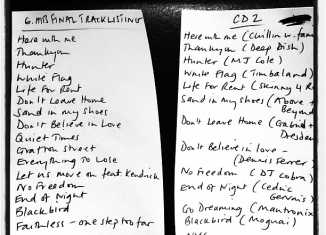 G. HITS FINAL TRACKLISTING
Here with me
Thankyou
Hunter
White Flag
Life For Rent
Don't Leave Home
Sand in my shoes
Don't Believe in Love
Quiet Times
Grafton Street
Everything To Lose
Let us move on feat Kendrick
No Freedom
End of Night
Blackbird
Faithless - one step too far
CD2
Here with me (Chillin w. fam
Thankyou (Deep Dish)
Hunter (MJ Cole)
White Flag (Timbaland)
Life For Rent (Skinny 4 R
Sand in my shoes (Above +
Beyond
Don't Leave Home (Gabriel +
Dresden
Don't Believe in love -
(Dennis Ferrer)
No Freedom (DJ Cobra)
End of Night (Cedric
Gervais)
Go Dreaming (Mantronix
Blackbird (Moguai)